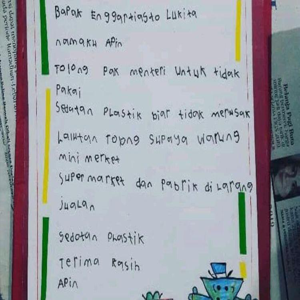 Bapak Enggartiasto Lukita
namaku Apin
Tolong Pak menteri untuk tidak
Pakai
Sedotan Plastik biar tidak merusak
Lautan Tolong Supaya Warung
mini merket
Supermarket dan Pabrik di larang
jualan
Sedotan Plastik
Terima Kasih
Apin